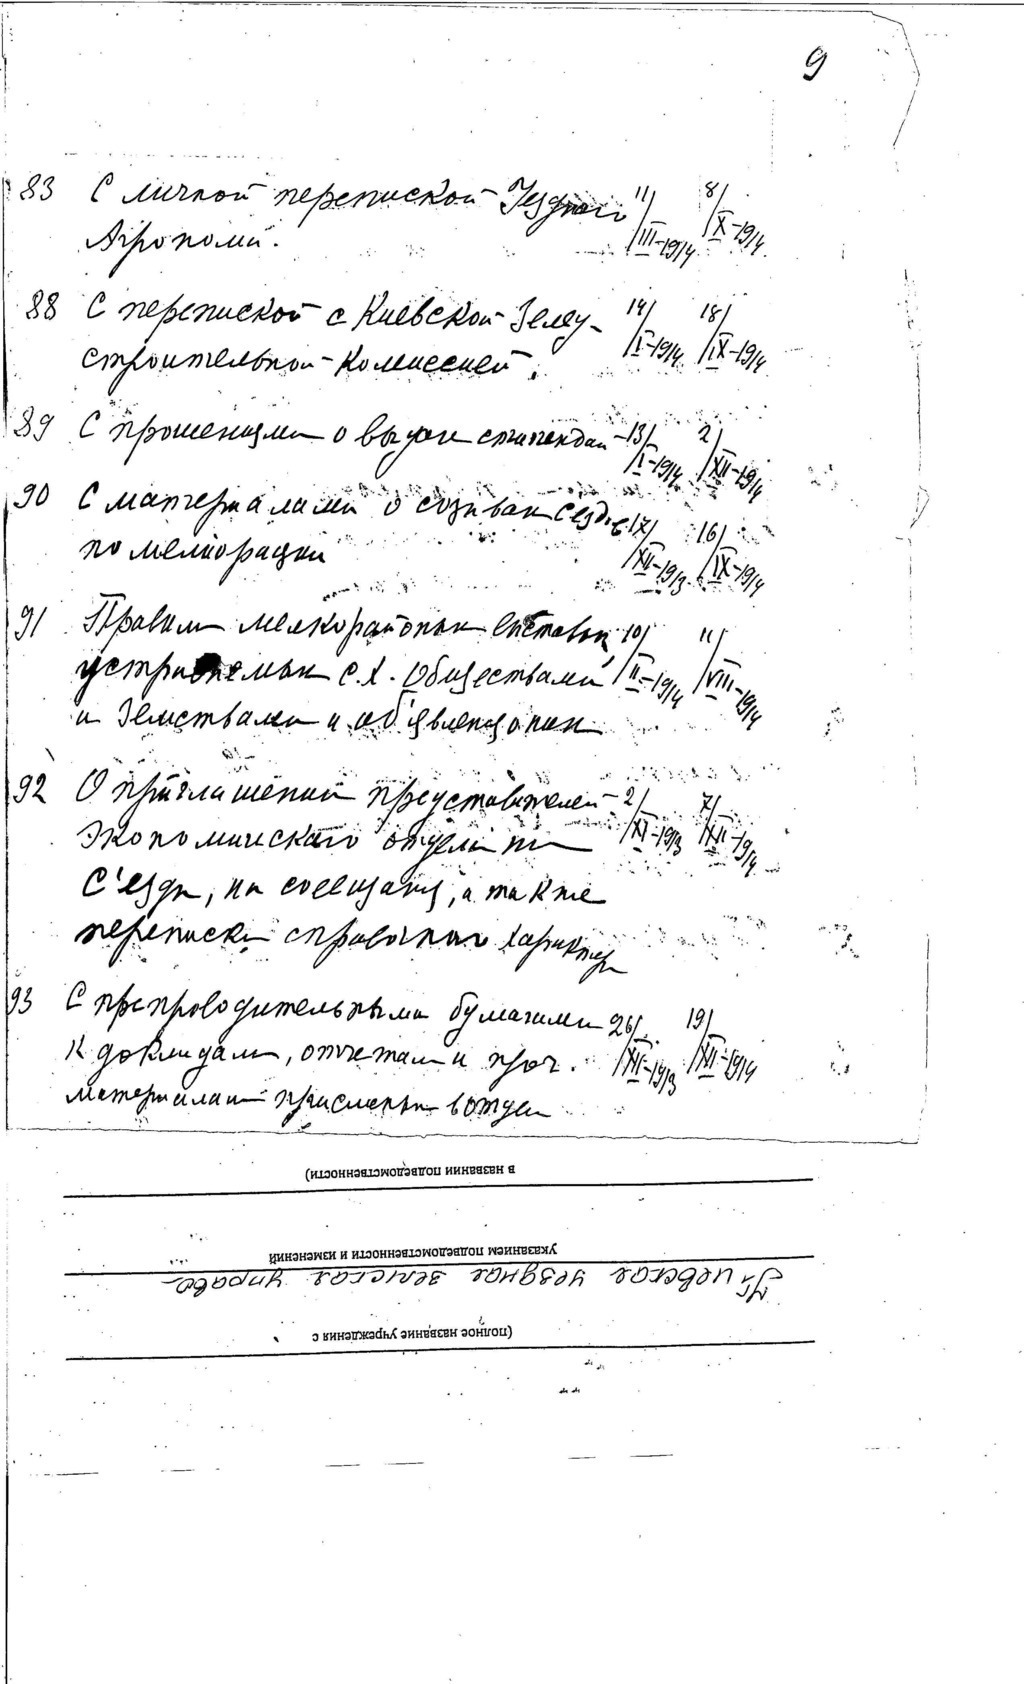 9
83 С личной перепиской Уездного 11/III-1914 8/X-1914.
Агронома.
88 С перепиской с Киевской Земле- 14/I-1914. 18/IX-1914
строительной Комиссией.
89 С прошениями о выдаче стипендий 13/I-1914. 2/XII-1914
90 С материалами о созыван с'ездов 17/XII-1913. 16/IX-1914
по мелиорации
91 Правил мелкорайонных выставок 10/II-1914 11/VIII-1914
устраиваемых с.х. Обществами
и Земствами и об'явления о них
92 О приглашении представителей 2/XI-1913 7/XII-1914.
Экономического отдела на
С'езды, на совещания, а также
переписки справочного характера
93 С препроводительными бумагами 26/XII-1913 19/XII-1914
к докладам, отчетам и проч.
материалами присланных в отдел
в названии подведомственности)
указанием подведомственности и изменений
Киевская уездная земская управа
(полное название учреждения с